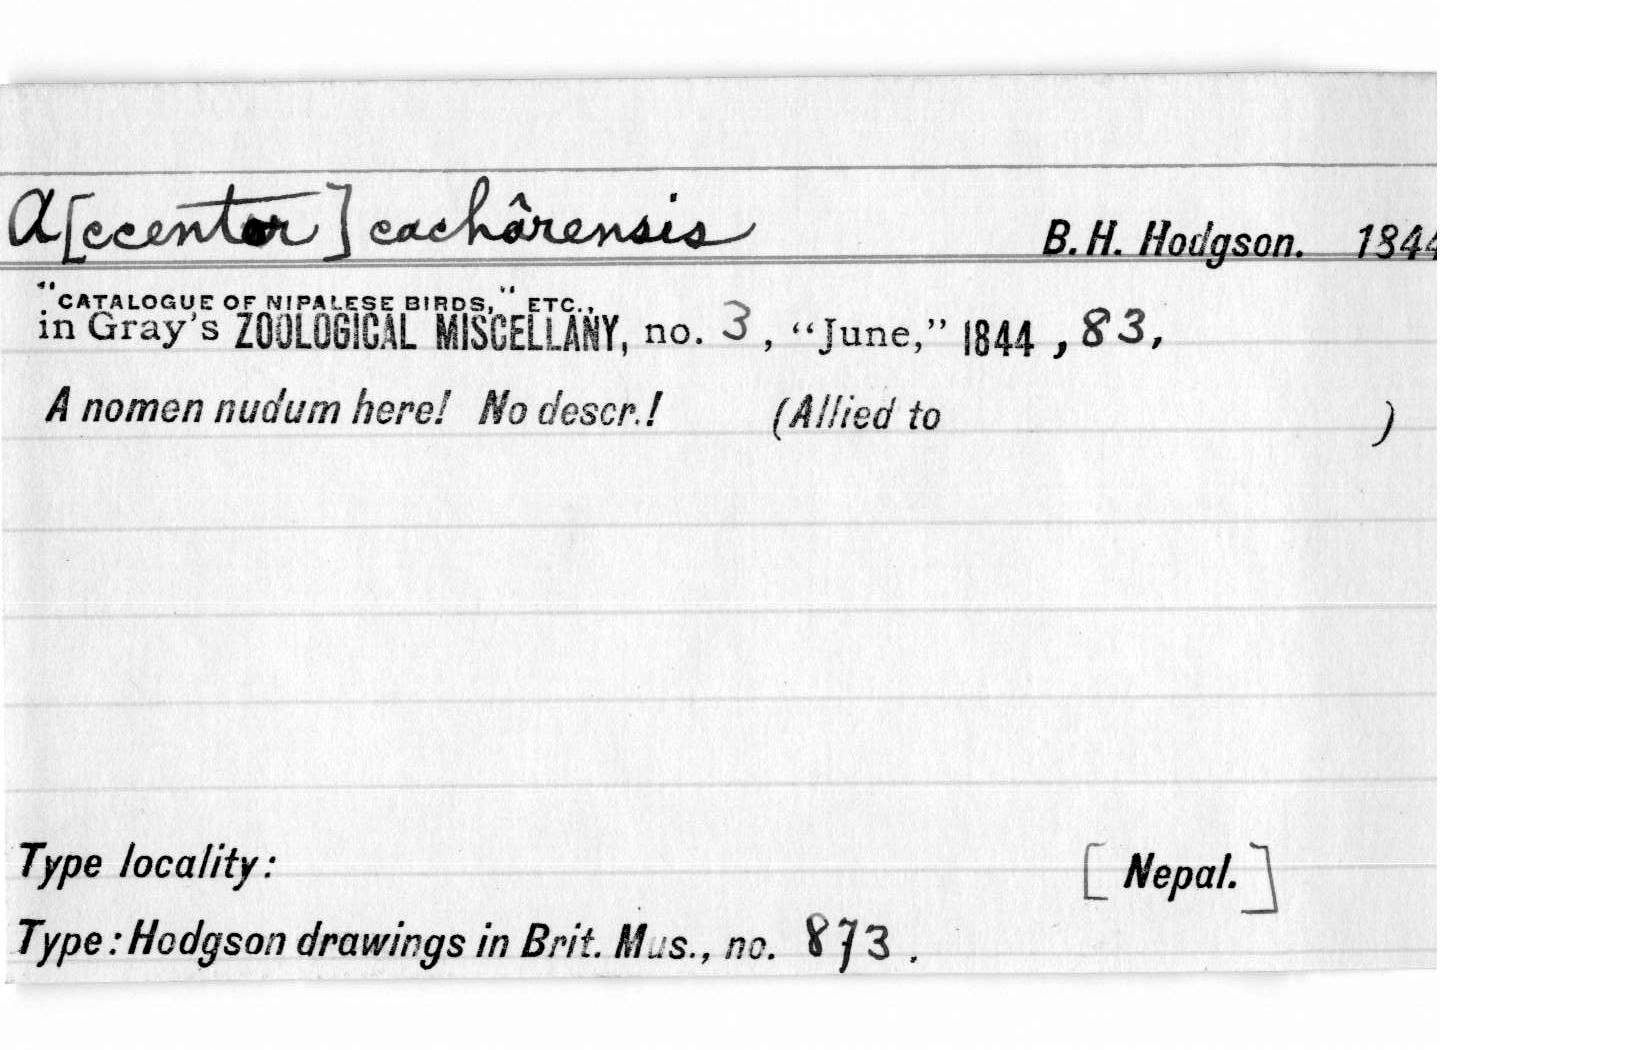 A[ccentor] cachârensis B. H. Hodgson. 1844
"CATALOGUE OF NIPALESE BIRDS," ETC.,
in Gray's ZOOLOGICAL MISCELLANY, no. 3, “June,” 1844, 83,
A nomen nudum here! No descr.! (Allied to )
Type locality: [Nepal.]
Type: Hodgson drawings in Brit. Mus., no. 873.